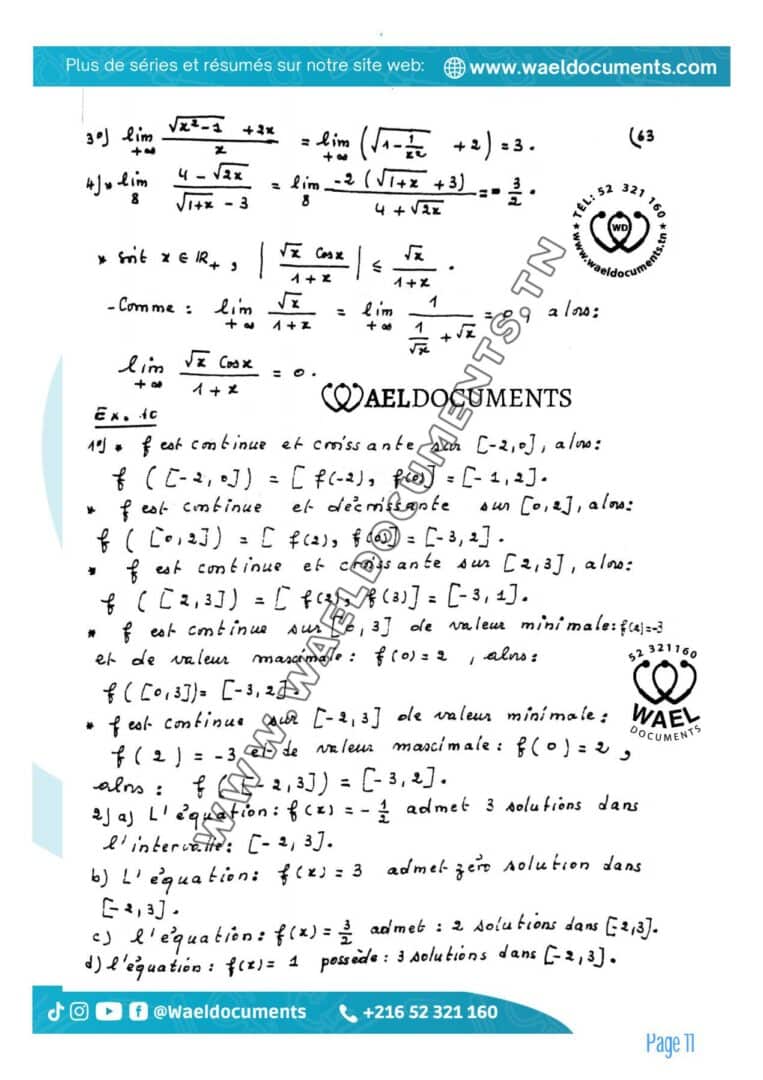 Plus de séries et résumés sur notre site web: www.waeldocuments.com
3°) lim +∞ √(x²-1) + 2x / x = lim +∞ (√(1 - 1/x²) + 2) = 3.
(63
4) * lim 8 (4 - √2x) / (√(1+x) - 3) = lim 8 -2(√(1+x) + 3) / (4 + √2x) = - 3/2.
TÉL: 52 321 160
WD
www.waeldocuments.tn
* Soit x ∈ IR₊, |√x Cosx / (1+x)| ≤ √x / (1+x).
- Comme : lim +∞ √x / (1+x) = lim +∞ 1 / (1/√x + √x) = 0, alors:
lim +∞ √x Cosx / (1+x) = 0.
WAELDOCUMENTS
Ex. 10
1°) * f est continue et croissante sur [-2,0], alors:
f ([-2,0]) = [f(-2), f(0)] = [-1,2].
* f est continue et décroissante sur [0,2], alors:
f ([0,2]) = [f(2), f(0)] = [-3,2].
* f est continue et croissante sur [2,3], alors:
f ([2,3]) = [f(2), f(3)] = [-3,1].
* f est continue sur [0,3] de valeur minimale: f(2)=-3
et de valeur maximale: f(0)=2, alors:
f([0,3])= [-3,2].
52 321160
WAEL
DOCUMENTS
* f est continue sur [-2,3] de valeur minimale:
f(2) = -3 et de valeur maximale: f(0)=2,
alors: f([-2,3]) = [-3,2].
2) a) L'équation: f(x) = -1/2 admet 3 solutions dans
l'intervalle: [-2,3].
b) L'équation: f(x) = 3 admet zéro solution dans
[-2,3].
c) l'équation: f(x)= 3/2 admet : 2 solutions dans [-2,3].
d) l'équation: f(x)= 1 possède: 3 solutions dans [-2,3].
WWW.WAELDOCUMENTS.TN
@Waeldocuments +216 52 321 160
Page 11